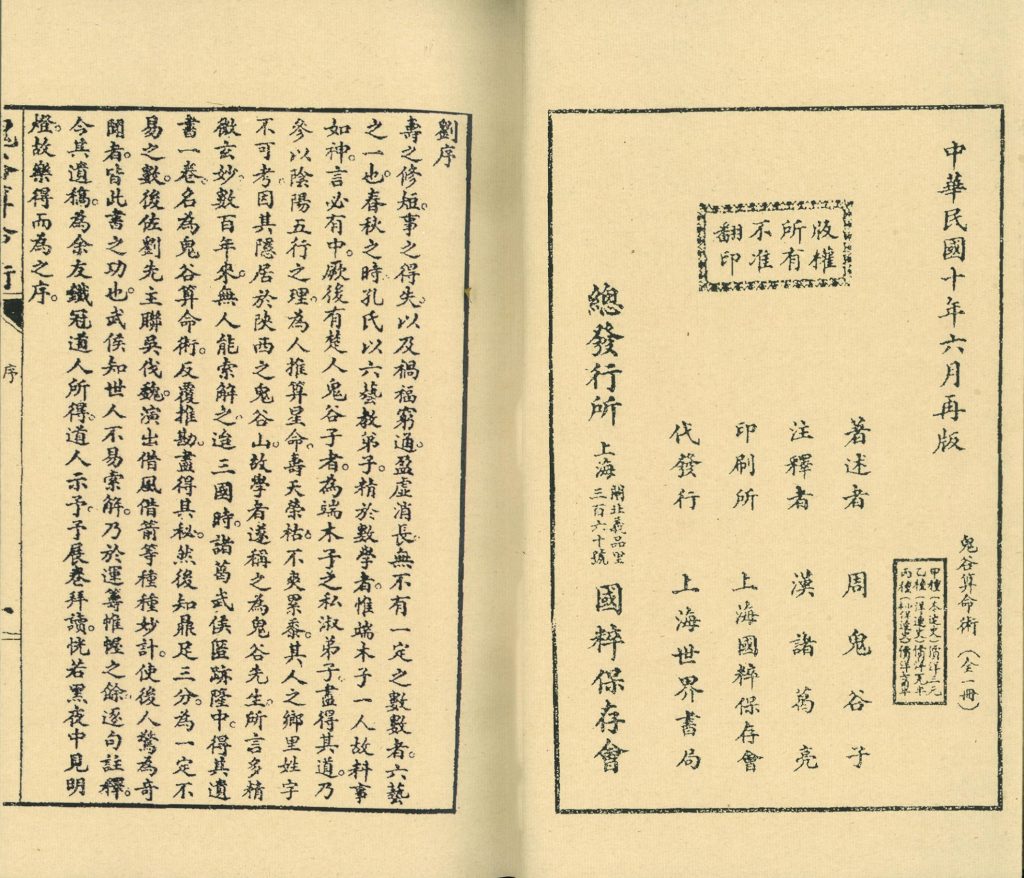 中華民國十年六月再版
鬼谷算命術(全一冊)
甲種(本連史)價洋三元
乙種(洋連史)價洋元半
著述者 周鬼谷子
注釋者 漢諸葛亮
印刷所 上海國粹保存會
代發行 上海世界書局
版權
所有
不准
翻印
總發行所 上海
閘北義品里
三百六十號
國粹保存會
劉序
壽之修短。事之得失。以及禍福窮通。盈虛消長。無不有一定之數。數者。六藝
之一也。春秋之時。孔氏以六藝教弟子。精於數學者。惟端木子一人。故料事
如神。言必有中。厥後有楚人鬼谷子者。為端木子之私淑弟子。盡得其道。乃
參以陰陽五行之理。為人推算星命。壽夭榮枯。不爽累黍。其人之鄉里姓字
不可考。因其隱居於陝西之鬼谷山。故學者遂稱之為鬼谷先生。所言多精
微玄妙。數百年來。無人能索解之。迨三國時。諸葛武侯匿跡隆中。得其遺
書一卷。名為鬼谷算命術。反覆推勘。盡得其秘。然後知鼎足三分。為一定不
易之數。後佐劉先主聯吳伐魏。演出借風借箭等種種妙計。使後人驚為奇
聞者。皆此書之功也。武侯知世人不易索解。乃於運籌帷幄之餘。逐句註釋。
今其遺稿。為余友鐵冠道人所得。道人示予。予展卷拜讀。恍若黑夜中見明
燈。故樂得而為之序。
鬼谷算命術
序